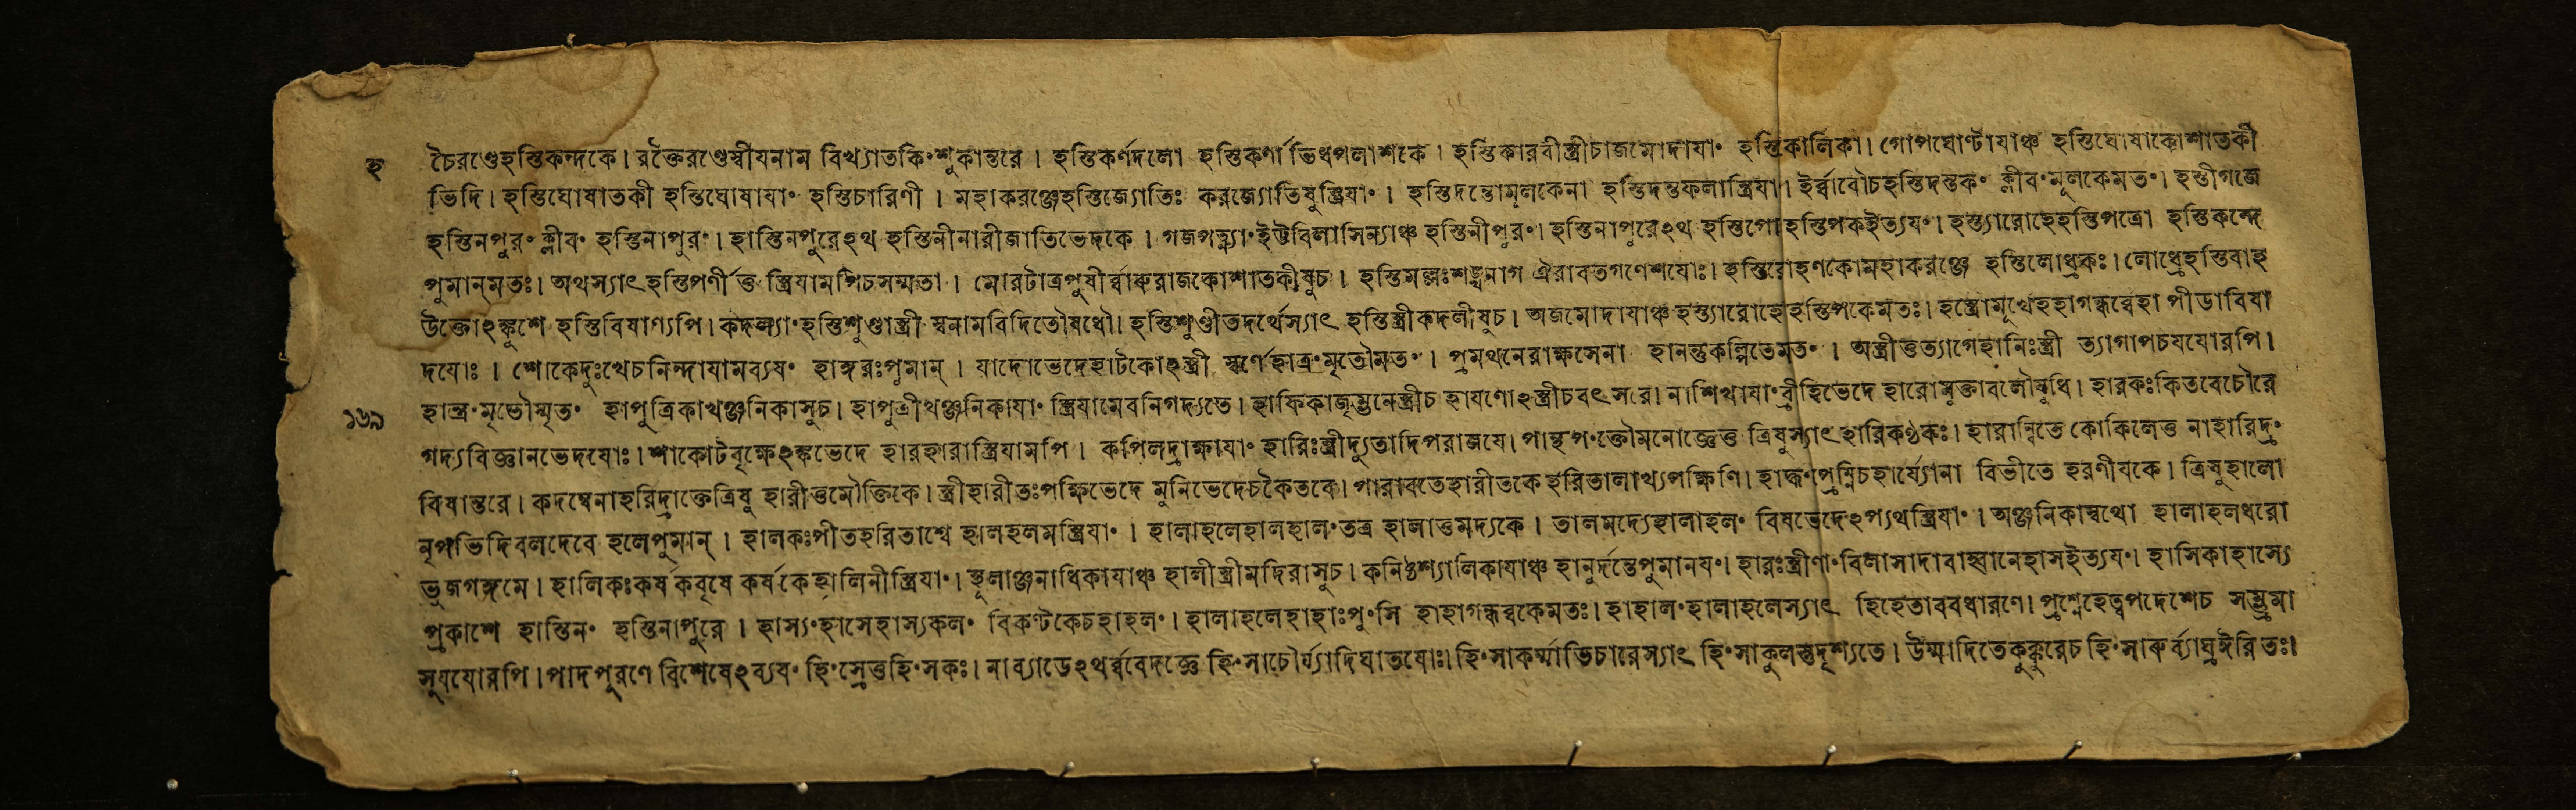 হ
চৈরণ্ডেহস্তিকন্দকে। রক্তৈরণ্ডেস্বীযনাম বিখ্যাতকিংশুকান্তরে। হস্তিকর্ণদলো হস্তিকর্ণাভিধপলাশকে। হস্তিকারবীস্ত্রীচাজমোদাযাং হস্তিকালিকা। গোপঘোণ্টাযাঞ্চ হস্তিঘোষাকোশাতকী
ভিদি। হস্তিঘোষাতকী হস্তিঘোষাযাং হস্তিচারিণী। মহাকরঞ্জেহস্তিজ্যোতিঃ করজ্যোতিষুস্ত্রিযাং। হস্তিদন্তোমূলকেনা হস্তিদন্তফলাস্ত্রিযা। ইর্ব্বাবৌচহস্তিদন্তকং ক্লীবংমূলকেমতং। হস্তীগজে
হস্তিনপুরং ক্লীবং হস্তিনাপুরং। হাস্তিনপুরেঽথ হস্তিনীনারীজাতিভেদকে। গজপত্ন্যাংহট্টবিলাসিন্যাঞ্চ হস্তিনীপুরং। হস্তিনাপুরেঽথ হস্তিপোহস্তিপকইত্যযং। হস্ত্যারোহেহস্তিপত্রো হস্তিকন্দে
পুমান্মতঃ। অথস্যাৎ হস্তিপর্ণীত্ত স্ত্রিযামপিচসম্মতা। মোরটাত্রপুষীর্ব্বারুরাজকোশাতকীষুচ। হস্তিমল্লঃশঙ্খনাগ ঐরাবতগণেশযোঃ। হস্তিরোহণকোমহাকরঞ্জে হস্তিলোধ্রকঃ। লোধ্রেহস্তিবাহ
উক্তোঽঙ্কুশে হস্তিবিষাণ্যপি। কদল্যাংহস্তিশুণ্ডাস্ত্রী স্বনামবিদিতৌষধৌ। হস্তিশুণ্ডীতদর্থেস্যাৎ হস্তিস্ত্রীকদলীষুচ। অজমোদাযাঞ্চহস্ত্যারোহেহস্তিপকেমতঃ। হহোমূর্খেহহাগন্ধর্ব্বেহা পীডাবিষা
দযোঃ। শোকেদুঃখেচনিন্দাযামব্যযং হাঙ্গরঃপুমান্। যাদোভেদেহাটকোঽস্ত্রী স্বর্ণেহাত্রংমৃতৌমতং। প্রমথনেরাক্ষসেনা হানন্তুকল্পিতেমতং। অস্ত্রীত্তত্যাগেহানিঃস্ত্রী ত্যাগাপচযযোরপি।
১৬৯
হান্ত্রংমৃতৌস্মৃতং হাপুত্রিকাখঞ্জনিকাসুচ। হাপুত্রীখঞ্জনিকাযাং স্ত্রিযামেবনিগদ্যতে। হাফিকাজৃম্ভনেস্ত্রীচ হাযণোঽস্ত্রীচবৎসরে। নাশিখাযাংব্রীহিভেদে হারোমুক্তাবলৌযুধি। হারকঃকিতবেচৌরে
গদ্যবিজ্ঞানভেদযোঃ। শাকোটবৃক্ষেঽঙ্কভেদে হারহারাস্ত্রিযামপি। কপিলদ্রাক্ষাযাং হারিঃস্ত্রীদ্যুতাদিপরাজযে। পান্থপংক্তৌমনোজ্ঞেত্ত ত্রিষুস্যাৎহারিকণ্ঠকঃ। হারান্বিতে কোকিলেত্ত নাহারিদ্রং
বিষান্তরে। কদম্বেনাহরিদ্রাক্তেত্রিষু হারীত্তমৌক্তিকে। স্ত্রীহারীতঃপক্ষিভেদে মুনিভেদেচকৈতবে। পারাবতেহারীতকে হরিতালাখ্যপক্ষিণি। হার্দ্ধংপ্রেম্নিচহার্য্যোনা বিভীতে হরণীযকে। ত্রিষুহালো
নৃপভিদিবলদেবে হলেপুমান্। হালকঃপীতহরিতাশ্বে হালহলমস্ত্রিযাং। হালাহলেহালহালংতত্র হালাত্তমদ্যকে। তালমদ্যেহালাহলং বিষভেদেঽপ্যথস্ত্রিযাং। অঞ্জনিকাস্বথো হালাহলধরো
ভুজগঙ্গমে। হালিকঃকর্ষকবৃষে কর্ষকেহালিনীস্ত্রিযাং। স্থূলাঞ্জনাধিকাযাঞ্চ হালীস্ত্রীমদিরাসুচ। কনিষ্ঠশ্যালিকাযাঞ্চ হানুর্দন্তেপুমানযং। হারঃস্ত্রীণাংবিলাসাদাবাহ্বানেহাসইত্যযং। হাসিকাহাস্যে
প্রকাশে হাস্তিনং হস্তিনাপুরে। হাস্যংহাসেহাস্যকলং বিকণ্টকেচহাহলং। হালাহলেহাহাঃপুংসি হাহাগন্ধর্ব্বকেমতঃ। হাহালংহালাহলেস্যাৎ হিহেতাববধারণে। প্রশ্নেহেত্বপদেশেচ সম্ভ্রমা
সূযযোরপি। পাদপূরণে বিশেষেঽব্যযং হিংস্রেত্তহিংসকঃ। নাব্যাডেঽথর্ব্ববেদজ্ঞে হিংসাচৌর্য্যাদিঘাতযোঃ। হিংসাকর্ম্মাভিচারেস্যাৎ হিংসাকুলস্তুদৃশ্যতে। উন্মাদিতেকুক্কুরেচ হিংসারুর্ব্যাঘ্রঈরিতঃ।